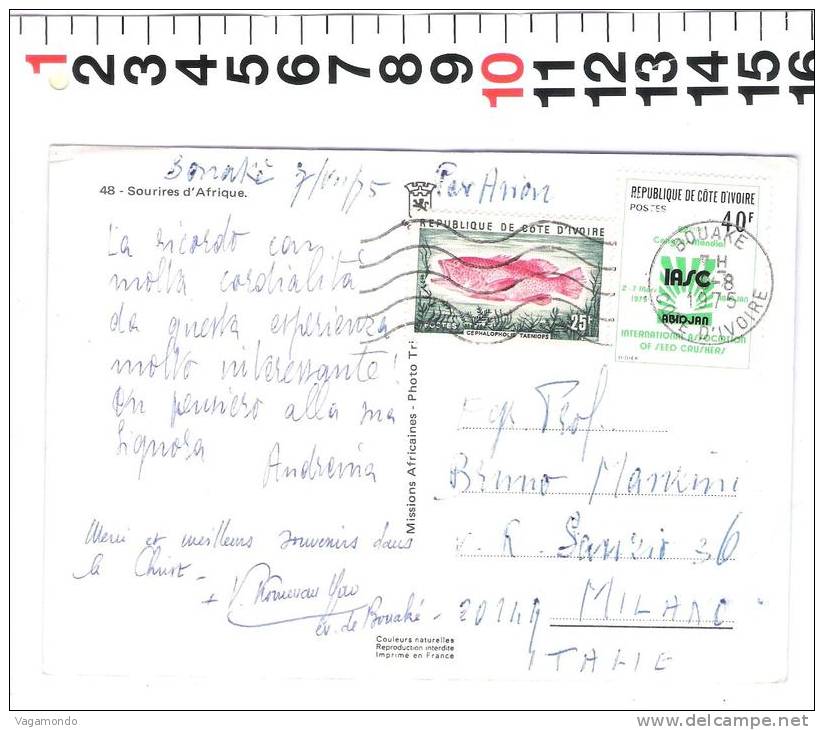 1 2 3 4 5 6 7 8 9 10 11 12 13 14 15 16
Bouaké 7/VIII/75 Par Avion
48 - Sourires d'Afrique.
La ricordo con
molta cordialità
da questa esperienza
molto interessante!
Un pensiero alla sua
Signora
Andreina
Merci et meilleurs souvenirs dans
le Christ -
+ V.
év. de Bouaké -
Couleurs naturelles
Reproduction interdite
Imprimé en France
Missions Africaines - Photo Tri
REPUBLIQUE DE COTE D'IVOIRE
POSTES
CEPHALOPHOLIS TAENIOPS
25F
REPUBLIQUE DE CÔTE D'IVOIRE
POSTES 40F
mondial
IASC
2-7 mars
1975
ABIDJAN
INTERNATIONAL ASSOCIATION
OF SEED CRUSHERS
BOUAKE
-8
1975
D'IVOIRE
Egr. Prof.
Bruno Mancini
v. R. Sanzio 36
20149 MILANO
ITALIE
Vagamondo
delcampe.net